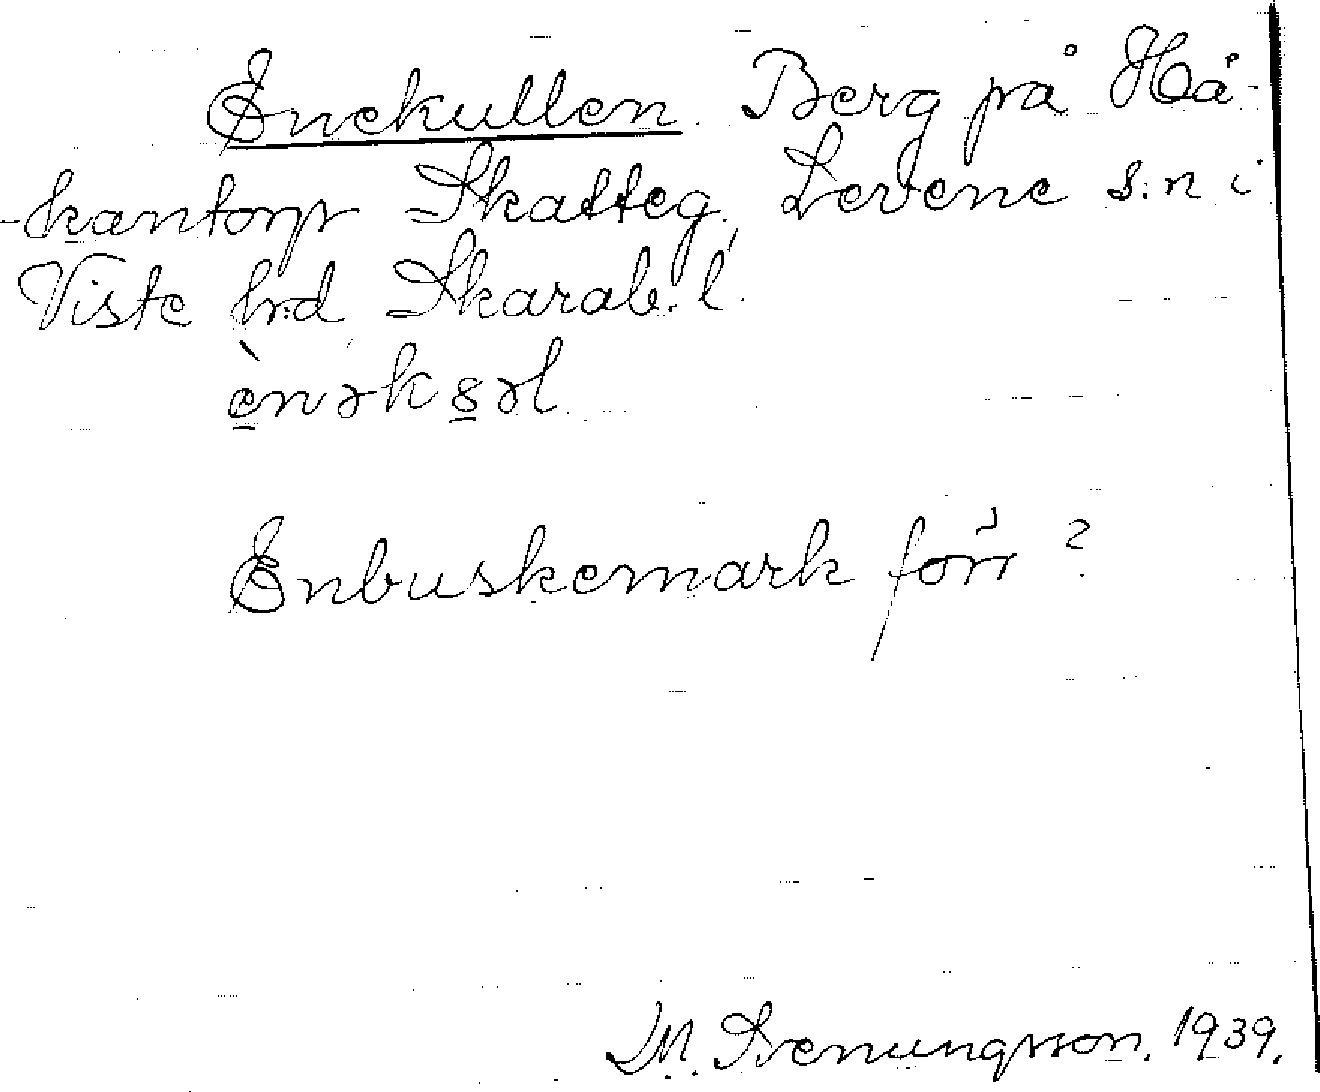 Enekullen. Berg på Hå-
-kantorp Skatteg. Levene s:n i
Viste h:d Skarab. l.
ènəksəl
Enbuskemark förr ?
M. Svenungsson. 1939.